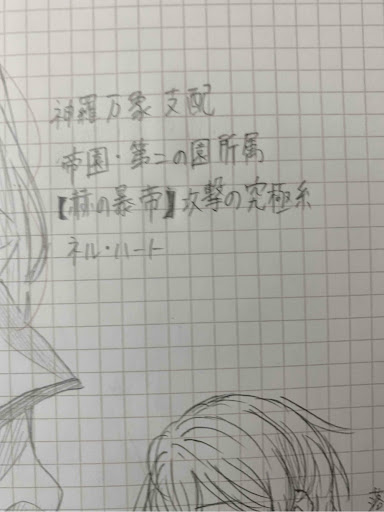 神羅万象支配
帝園・第二の園所属
【赫の暴帝】攻撃の究極系
ネル・ハート
落